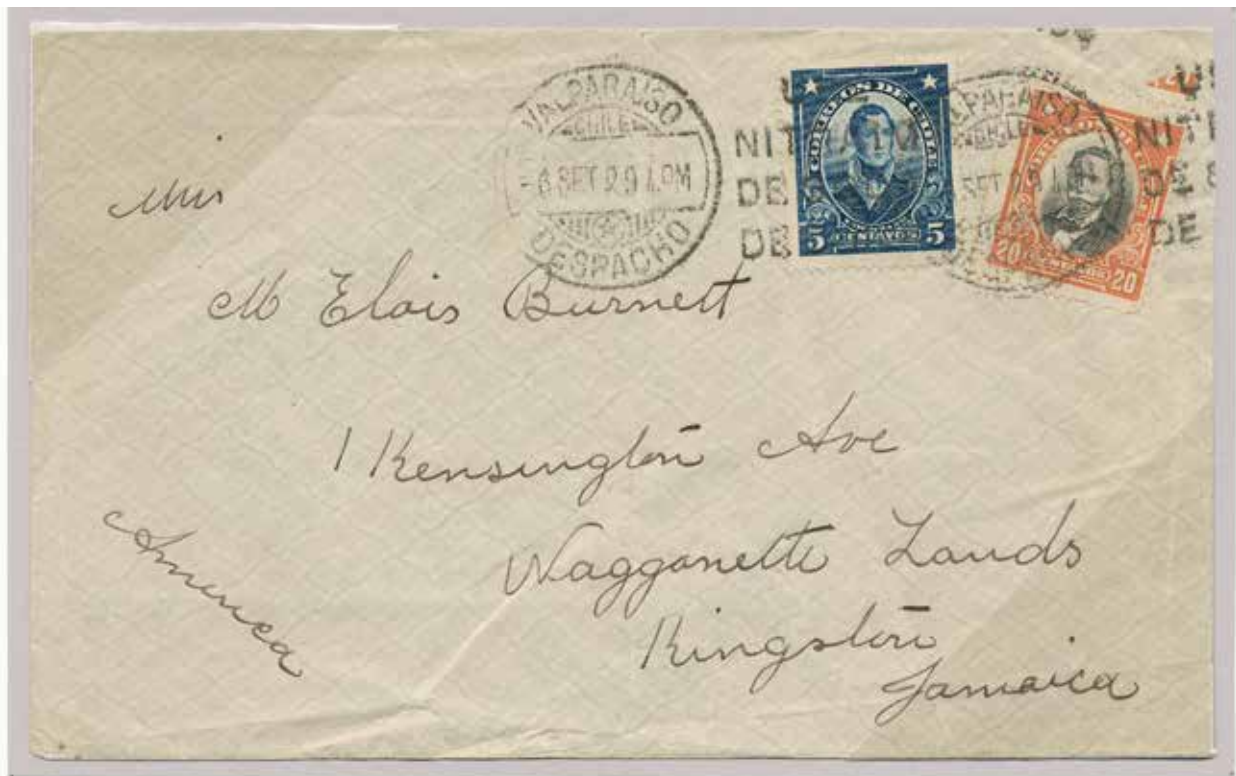 VALPARAISO
CHILE
SET 29
DESPACHO
CORREOS DE CHILE
5 CENTAVOS 5
VALPARAISO
CHILE
20 20
DE
DE
M Elois Burnett
1 Kensington Ave
Wagganette Lands
Kingston
Jamaica
America